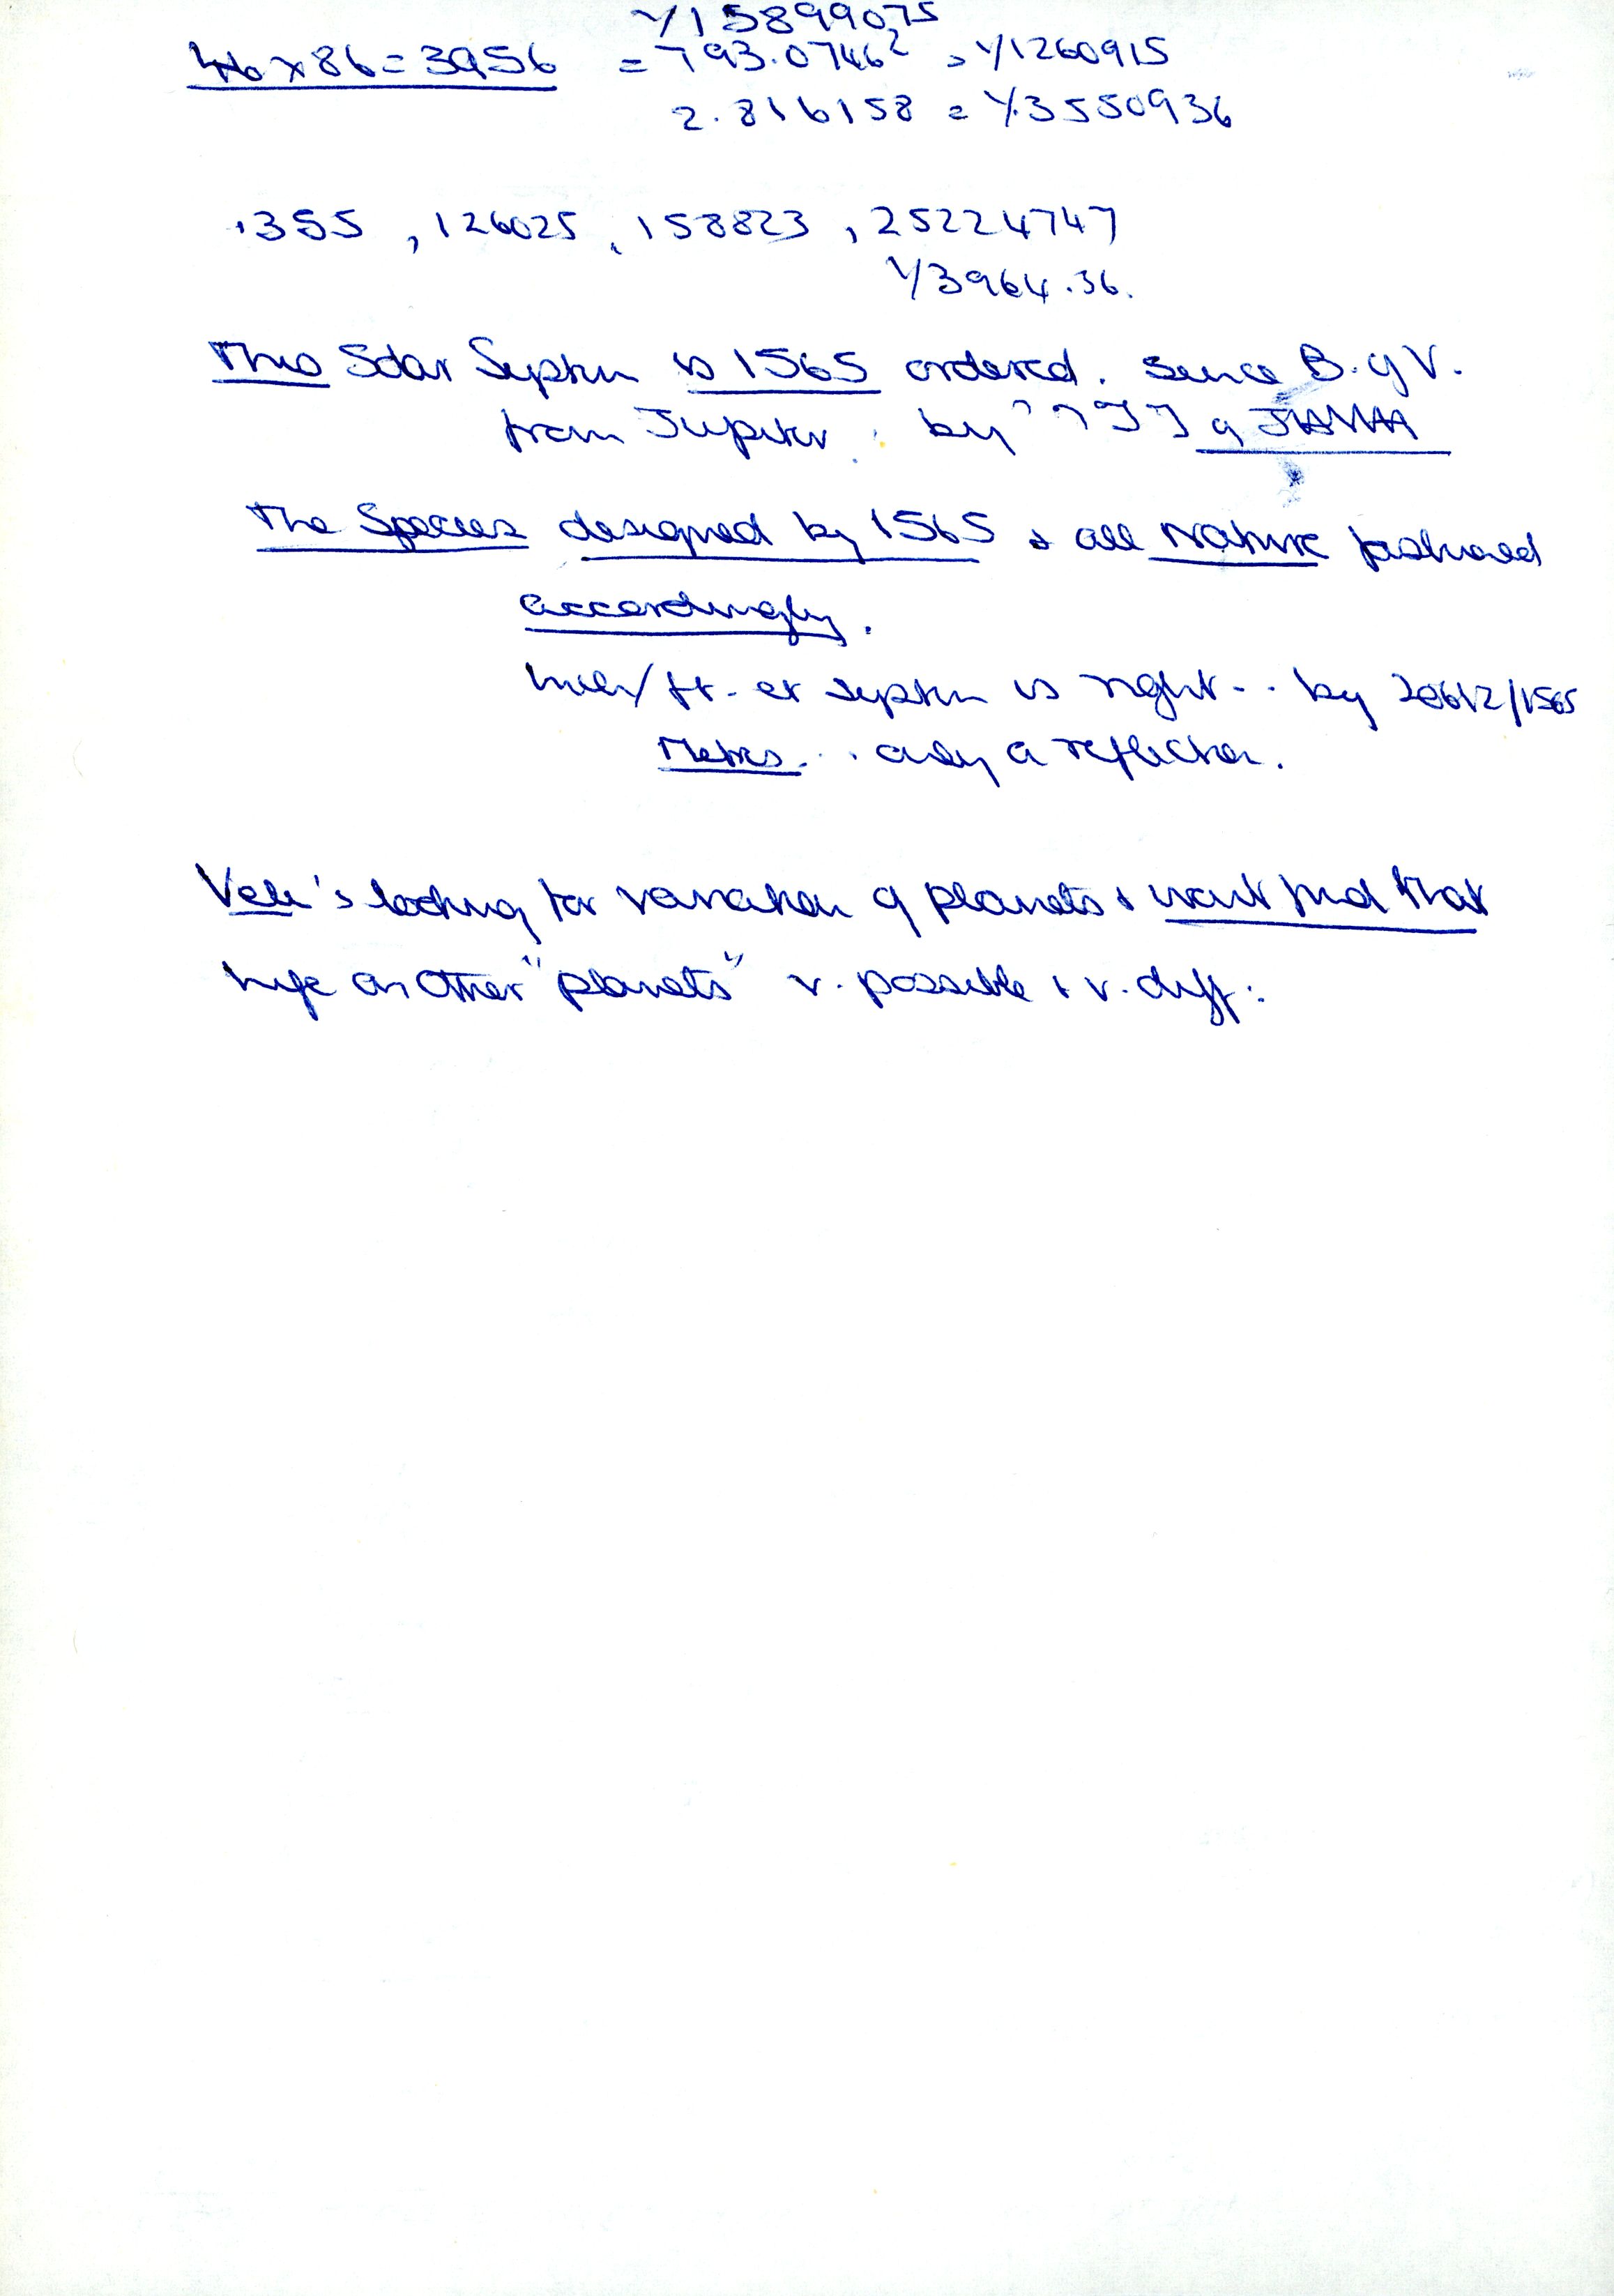 1/15899075
46 x 86 = 3956 = 793.0746² > 1/1260915
2.816158 = 1/.3550936
.355 , 126025 , 158823 , 25224747
1/3964.36.
This Solar System is 1565 ordered. Since B. of V.
from Jupiter by
The Species designed by 1565 & all Nature fashioned
accordingly.
/ft. et system is right .. by 20612/1565
Metres... only a reflection.
's looking for variation of planets & wont find that
life on other "planets" v. possible & v. diff: